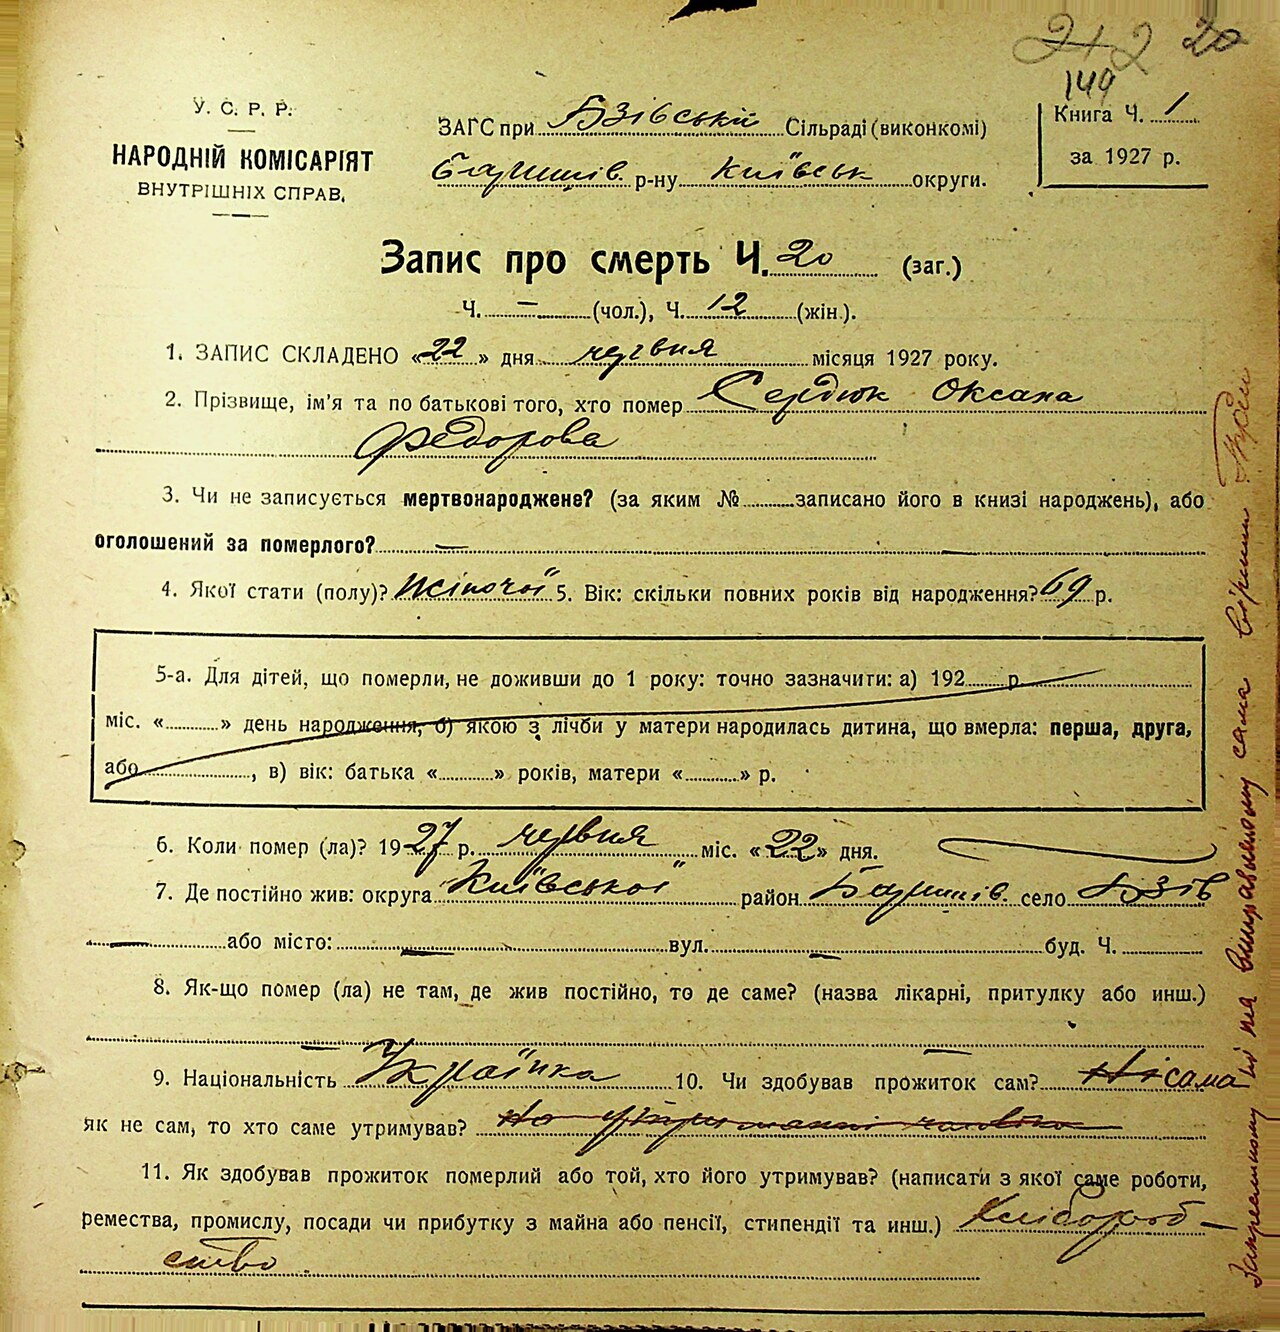 242 20
149
У. С. Р. Р.
НАРОДНІЙ КОМІСАРІЯТ
ВНУТРІШНІХ СПРАВ.
ЗАГС при Бзівській Сільраді (виконкомі)
Баришів. р-ну Київськ округи.
Книга Ч. 1
за 1927 р.
Запис про смерть Ч. 20 (заг.)
Ч. — (чол.), Ч. 12 (жін.).
1. ЗАПИС СКЛАДЕНО «22» дня червня місяця 1927 року.
2. Прізвище, ім'я та по батькові того, хто помер Сердюк Оксана
Федорова
3. Чи не записується мертвонароджене? (за яким № записано його в книзі народжень), або
оголошений за померлого? — —
4. Якої стати (полу)? жіночої 5. Вік: скільки повних років від народження? 69 р.
5-а. Для дітей, що померли, не доживши до 1 року: точно зазначити: а) 192 р.
міс. « » день народження, б) якою з лічби у матери народилась дитина, що вмерла: перша, друга,
або , в) вік: батька « » років, матери « » р.
6. Коли помер (ла)? 1927 р. червня міс. «22» дня.
7. Де постійно жив: округа Київської район Баришів. село Бзів
— або місто: — вул. — буд. Ч.
8. Як-що помер (ла) не там, де жив постійно, то де саме? (назва лікарні, притулку або инш.)
— —
9. Національність Українка 10. Чи здобував прожиток сам? Ні сама
як не сам, то хто саме утримував? На утриманні чоловіка
11. Як здобував прожиток померлий або той, хто його утримував? (написати з якої саме роботи,
ремества, промислу, посади чи прибутку з майна або пенсії, стипендії та инш.) Хлібороб-
ство
Закресленому Ні на виправленому сама вірити